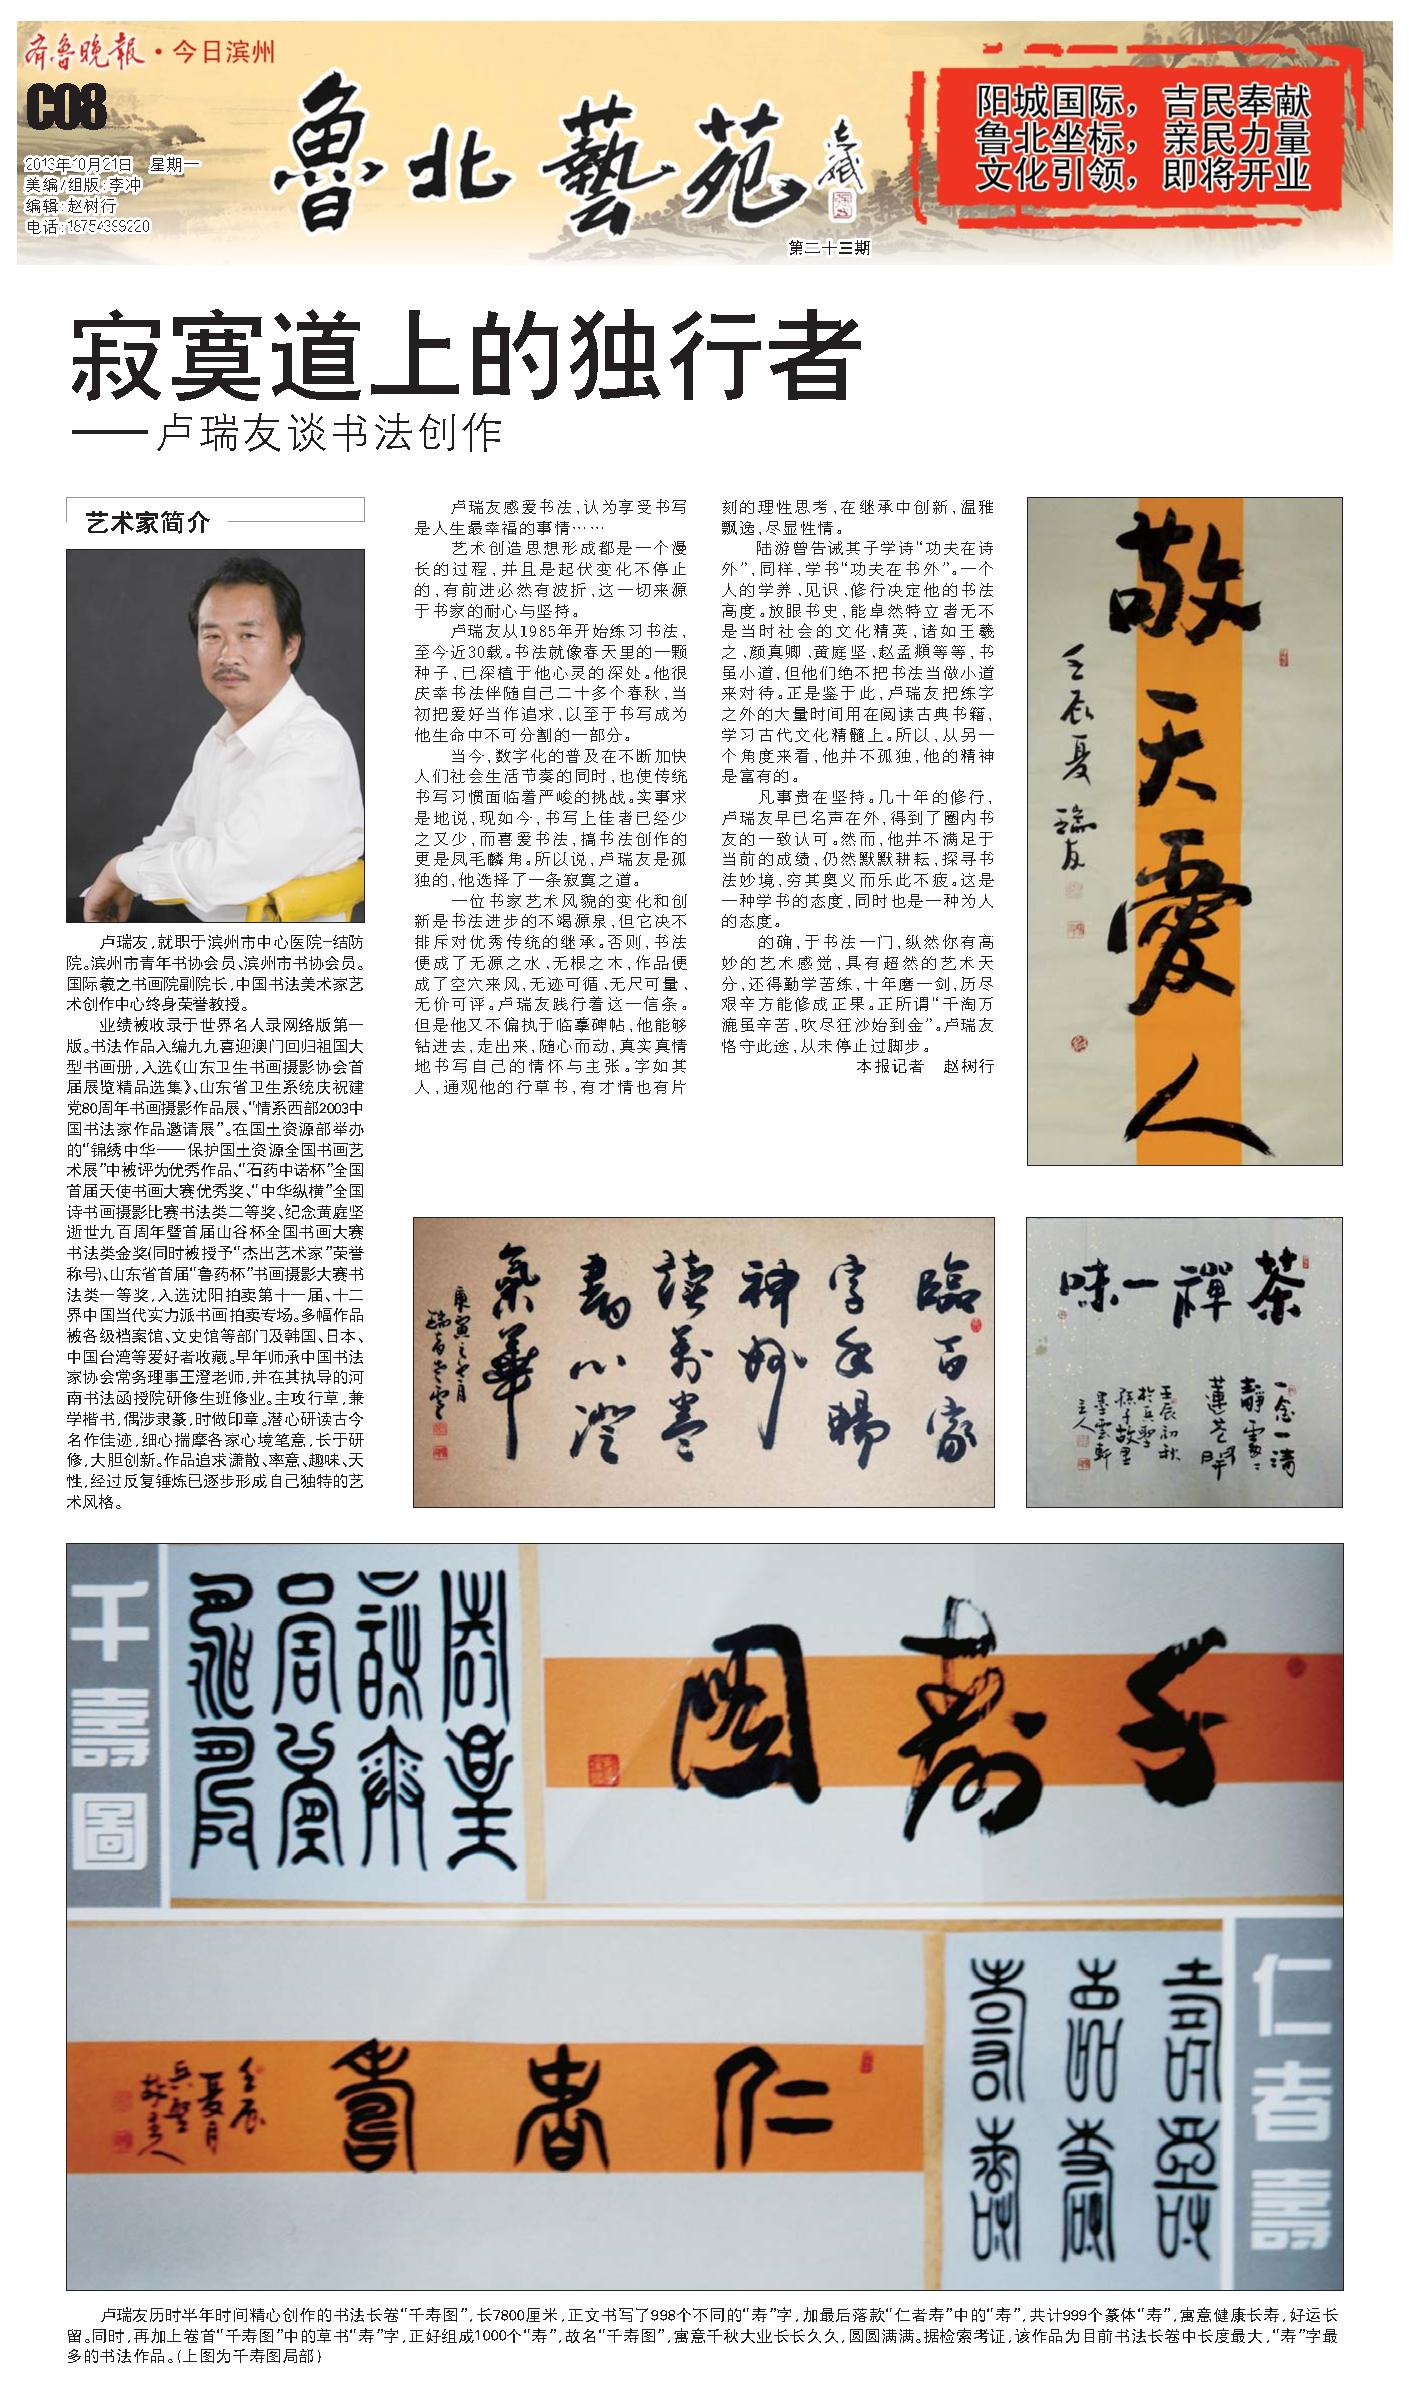 齐鲁晚报·今日滨州
C08
2013年10月21日 星期一
美编/组版:李冲
编辑:赵树行
电话:18754399220
魯北藝苑
第二十三期
阳城国际，吉民奉献
鲁北坐标，亲民力量
文化引领，即将开业
寂寞道上的独行者
——卢瑞友谈书法创作
艺术家简介
卢瑞友,就职于滨州市中心医院-结防
院。滨州市青年书协会员、滨州市书协会员。
国际羲之书画院副院长,中国书法美术家艺
术创作中心终身荣誉教授。
业绩被收录于世界名人录网络版第一
版。书法作品入编九九喜迎澳门回归祖国大
型书画册,入选《山东卫生书画摄影协会首
届展览精品选集》、山东省卫生系统庆祝建
党80周年书画摄影作品展、“情系西部2003中
国书法家作品邀请展”。在国土资源部举办
的“锦绣中华——保护国土资源全国书画艺
术展”中被评为优秀作品、“石药中诺杯”全国
首届天使书画大赛优秀奖、“中华纵横”全国
诗书画摄影比赛书法类二等奖、纪念黄庭坚
逝世九百周年暨首届山谷杯全国书画大赛
书法类金奖(同时被授予“杰出艺术家”荣誉
称号)、山东省首届“鲁药杯”书画摄影大赛书
法类一等奖,入选沈阳拍卖第十一届、十二
界中国当代实力派书画拍卖专场。多幅作品
被各级档案馆、文史馆等部门及韩国、日本、
中国台湾等爱好者收藏。早年师承中国书法
家协会常务理事王澄老师,并在其执导的河
南书法函授院研修生班修业。主攻行草,兼
学楷书,偶涉隶篆,时做印章。潜心研读古今
名作佳迹,细心揣摩各家心境笔意,长于研
修,大胆创新。作品追求潇散、率意、趣味、天
性,经过反复锤炼已逐步形成自己独特的艺
术风格。
卢瑞友感爱书法,认为享受书写
是人生最幸福的事情……
艺术创造思想形成都是一个漫
长的过程,并且是起伏变化不停止
的,有前进必然有波折,这一切来源
于书家的耐心与坚持。
卢瑞友从1985年开始练习书法,
至今近30载。书法就像春天里的一颗
种子,已深植于他心灵的深处。他很
庆幸书法伴随自己二十多个春秋,当
初把爱好当作追求,以至于书写成为
他生命中不可分割的一部分。
当今,数字化的普及在不断加快
人们社会生活节奏的同时,也使传统
书写习惯面临着严峻的挑战。实事求
是地说,现如今,书写上佳者已经少
之又少,而喜爱书法,搞书法创作的
更是凤毛麟角。所以说,卢瑞友是孤
独的,他选择了一条寂寞之道。
一位书家艺术风貌的变化和创
新是书法进步的不竭源泉,但它决不
排斥对优秀传统的继承。否则,书法
便成了无源之水、无根之木,作品便
成了空穴来风,无迹可循,无尺可量,
无价可评。卢瑞友践行着这一信条。
但是他又不偏执于临摹碑帖,他能够
钻进去,走出来,随心而动,真实真情
地书写自己的情怀与主张。字如其
人,通观他的行草书,有才情也有片
刻的理性思考,在继承中创新,温雅
飘逸,尽显性情。
陆游曾告诫其子学诗“功夫在诗
外”,同样,学书“功夫在书外”。一个
人的学养、见识、修行决定他的书法
高度。放眼书史,能卓然特立者无不
是当时社会的文化精英,诸如王羲
之、颜真卿、黄庭坚、赵孟頫等等,书
虽小道,但他们绝不把书法当做小道
来对待。正是鉴于此,卢瑞友把练字
之外的大量时间用在阅读古典书籍,
学习古代文化精髓上。所以,从另一
个角度来看,他并不孤独,他的精神
是富有的。
凡事贵在坚持。几十年的修行,
卢瑞友早已名声在外,得到了圈内书
友的一致认可。然而,他并不满足于
当前的成绩,仍然默默耕耘,探寻书
法妙境,穷其奥义而乐此不疲。这是
一种学书的态度,同时也是一种为人
的态度。
的确,于书法一门,纵然你有高
妙的艺术感觉,具有超然的艺术天
分,还得勤学苦练,十年磨一剑,历尽
艰辛方能修成正果。正所谓“千淘万
漉虽辛苦,吹尽狂沙始到金”。卢瑞友
恪守此途,从未停止过脚步。
本报记者 赵树行
敬天愛人
壬辰夏 瑞友
臨百家
字自暢
神妙
讀万卷
書心澄
氣華
茶禪一味
一念一清
靜靈
蓮花開
壬辰初秋
於兵聖
孫子故里
墨雲軒
主人
千壽圖
千寿圖
仁者壽
仁者壽
壬辰
夏月
卢瑞友历时半年时间精心创作的书法长卷“千寿图”,长7800厘米,正文书写了998个不同的“寿”字,加最后落款“仁者寿”中的“寿”,共计999个篆体“寿”,寓意健康长寿,好运长
留。同时,再加上卷首“千寿图”中的草书“寿”字,正好组成1000个“寿”,故名“千寿图”,寓意千秋大业长长久久,圆圆满满。据检索考证,该作品为目前书法长卷中长度最大,“寿”字最
多的书法作品。(上图为千寿图局部)